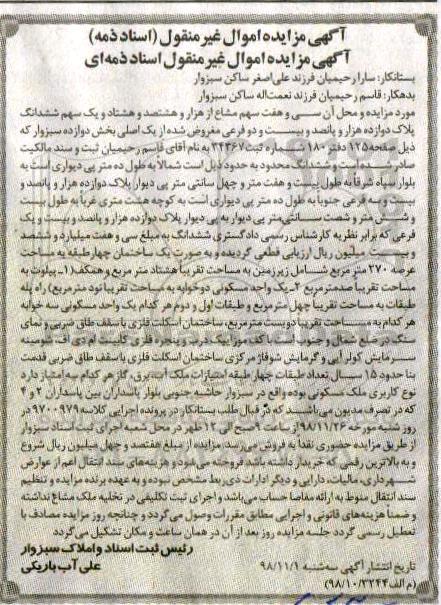 آگهی مزایده اموال غیر منقول (اسناد ذمه)
آگهی مزایده اموال غیر منقول اسناد ذمه‌ای
بستانکار: سارا رحیمیان فرزند علی‌اصغر ساکن سبزوار
بدهکار: قاسم رحیمیان فرزند نعمت‌اله ساکن سبزوار
مورد مزایده و محل آن سی و هفت سهم مشاع از هزار و هشتصد و هشتاد و یک سهم ششدانگ
پلاک دوازده هزار و پانصد و بیست و دو فرعی مفروض شده از یک اصلی بخش دوازده سبزوار که
ذیل صفحه ۱۲۵ دفتر ۱۸۰ شماره ثبت ۳۴۳۶۷ به نام آقای قاسم رحیمیان ثبت و سند مالکیت
صادر است و ششدانگ محدود به حدود ذیل است شمالاً به طول ده متر پی دیواری است به
بلوار سپاه شرقاً به طول بیست و هفت متر و چهل سانتی متر پی دیوار پلاک دوازده هزار و پانصد و
بیست و سه فرعی جنوباً به طول ده متر پی دیواری است به کوچه هشت متری غرباً به طول بیست
و شش متر و شصت سانتی‌متر پی دیوار به پی دیوار پلاک دوازده هزار و پانصد و بیست و یک
فرعی که برابر نظریه کارشناس رسمی دادگستری ششدانگ به مبلغ سی و هفت میلیارد و ششصد
و بیست میلیون ریال ارزیابی قطعی گردیده و به صورت یک ساختمان چهار طبقه به مساحت
عرصه ۲۷۰ متر مربع شامل زیرزمین به مساحت تقریباً هفتاد متر مربع و همکف (۱ـ پیلوت به
مساحت تقریباً صدمتر مربع ۲ـ یک واحد مسکونی دوخوابه به مساحت تقریبا نود متر مربع) راه پله
طبقات به مساحت تقریبا چهل متر مربع و طبقات اول و دوم هر کدام یک واحد مسکونی سه خوابه
هر کدام به مساحت تقریبا دویست متر مربع، ساختمان اسکلت فلزی با سقف طاق ضربی و نمای
سنگ در ضلع شمال و جنوب است با کف موزاییک درب و پنجره فلزی کابینت ام دی اف، شومینه
سرمایش کولر آبی و گرمایش شوفاژ مرکزی ساختمان اسکلت فلزی با سقف طاق ضربی قدمت
بنا حدود ۱۵ سال تعداد طبقات چهار طبقه امتیازات ملک آب، برق، گاز هر کدام سه امتیاز دارد
نوع کاربری ملک مسکونی بوده واقع در سبزوار حاشیه جنوبی بلوار پاسداران بین پاسداران ۲ و ۴
که در تصرف مدیون می‌باشند که در قبال طلب بستانکار در پرونده اجرایی کلاسه ۹۷۰۰۹۷۹ در
روز شنبه مورخه ۹۸/۱۱/۲۶ از ساعت ۹ صبح الی ۱۲ ظهر در محل شعبه اجرای ثبت اسناد سبزوار
از طریق مزایده حضوری نقدا به فروش می‌رسد. مزایده از مبلغ هفتصد و چهل میلیون ریال شروع
و به بالاترین قیمتی که خریدار داشته باشد فروخته می‌شود و هزینه‌های سند انتقال اعم از عوارض
شهرداری، مالیات، دارایی و دیگر ادارات ذی‌ربط مشخص نبوده و به عهده برنده مزایده و تنظیم
سند انتقال منوط به ارائه مفاصا حساب می‌باشد و اجرای ثبت تکلیفی در تخلیه ملک مشاع نداشته
و ضمناً هزینه‌های قانونی و اجرایی مطابق مقررات وصول می‌گردد و چنانچه روز مزایده مصادف با
تعطیل رسمی گردد جلسه مزایده روز بعد از آن در همان ساعت و مکان تشکیل می‌گردد
رئیس ثبت اسناد و املاک سبزوار
تاریخ انتشار آگهی سه‌شنبه ۹۸/۱۱/۱
علی آب باریکی
(م الف ۹۸/۱۰/۳۲۴۴)